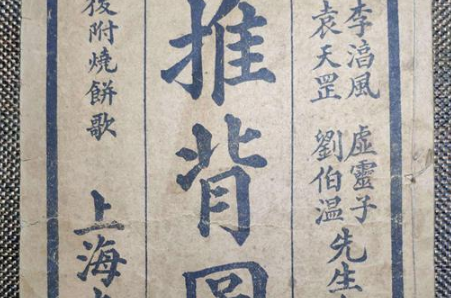 李湻風 虛靈子
袁天罡 劉伯温
先生
推背圖
後附燒餅歌
上海